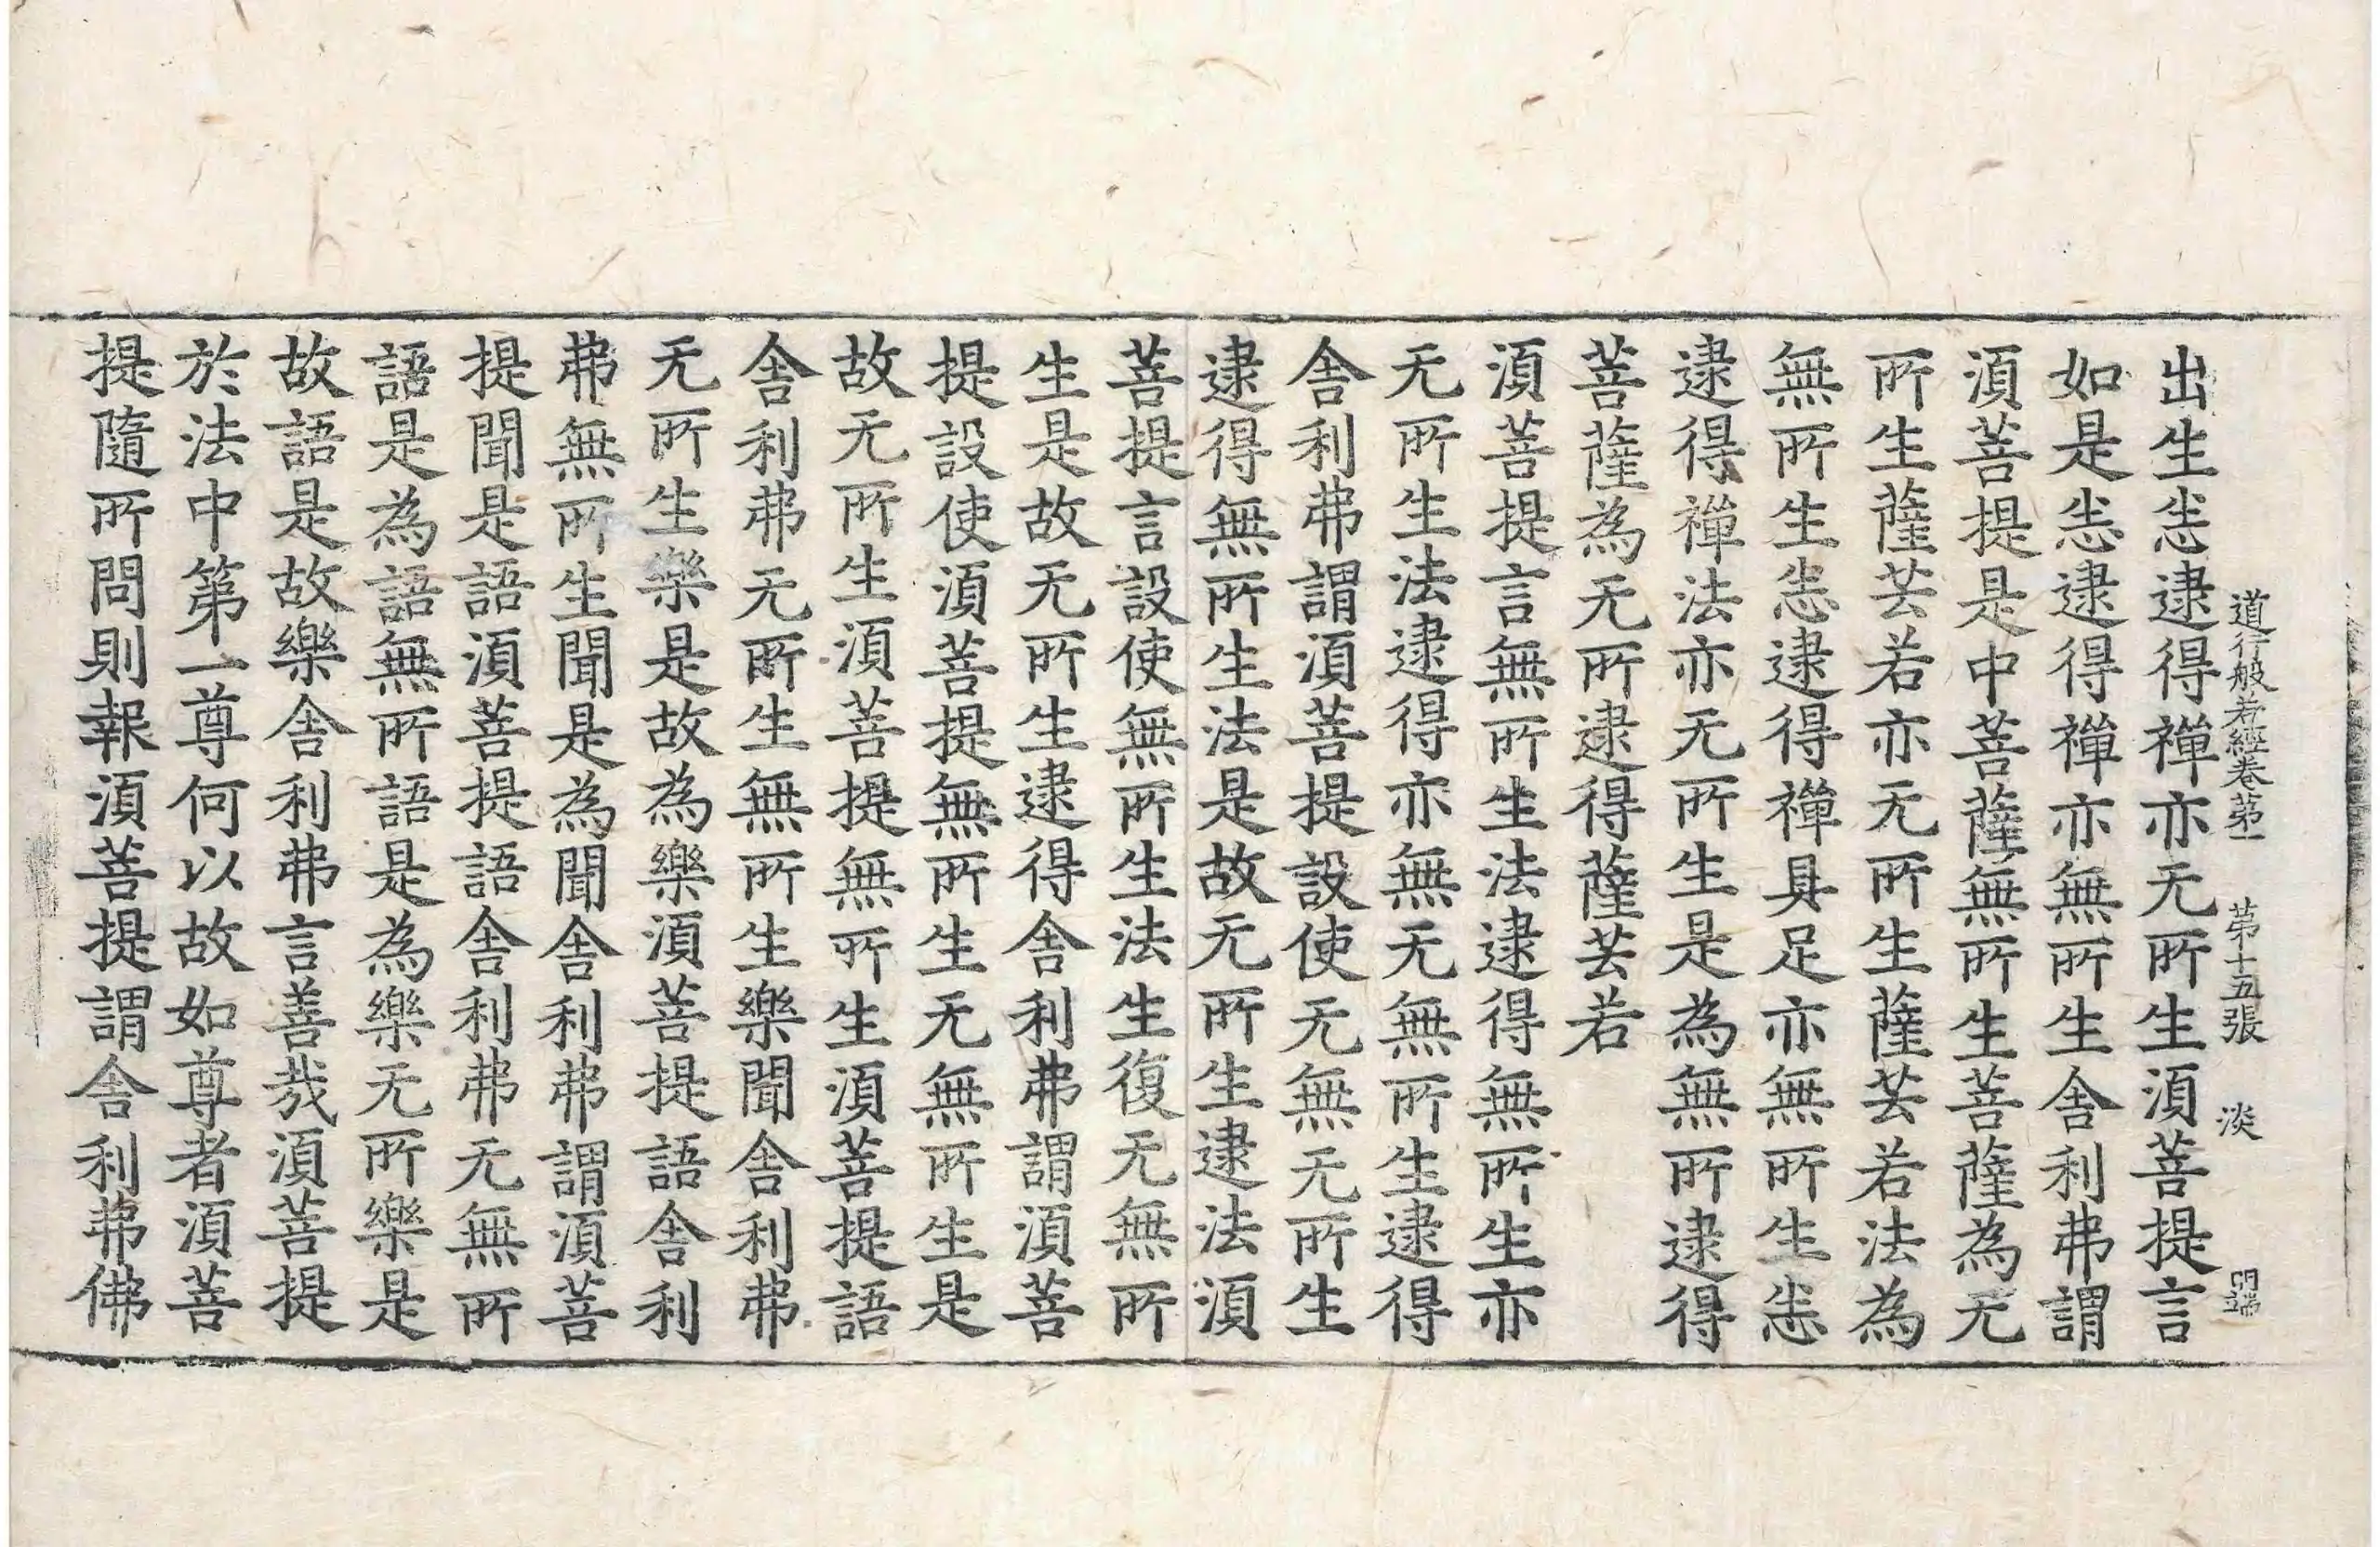 道行般若經卷苐一 苐十五張 淡
出生悉逮得禪亦无所生湏菩提言
如是悉逮得禪亦無所生舍利弗謂
湏菩提是中菩薩無所生菩薩為无
所生薩芸若亦无所生薩芸若法為
無所生悉逮得禪具足亦無所生悉
逮得禪法亦无所生是為無所逮得
菩薩為无所逮得薩芸若
湏菩提言無所生法逮得無所生亦
无所生法逮得亦無无無所生逮得
舍利弗謂湏菩提設使无無无所生
逮得無所生法是故无所生逮法湏
菩提言設使無所生法生復无無所
生是故无所生逮得舍利弗謂湏菩
提設使湏菩提無所生无無所生是
故无所生湏菩提無所生湏菩提語
舍利弗无所生無所生樂聞舍利弗
无所生樂是故為樂湏菩提語舍利
弗無所生聞是為聞舍利弗謂湏菩
提聞是語湏菩提語舍利弗无無所
語是為語無所語是為樂无所樂是
故語是故樂舍利弗言善哉湏菩提
於法中苐一尊何以故如尊者湏菩
提隨所問則報湏菩提謂舍利弗佛